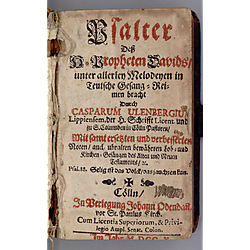 Psalter
Deß
H. Propheten Davids/
unter allerley Melodeyen in
Teutsche Gesang-Rei-
men bracht
Durch
CASPARUM ULENBERGIUM
Lippiensem, der H. Schrifft Licent. und
zu S. Columben in Cölln Pastorn/
Mit samt ersetzten und verbesserten
Noten/ auch uhralten bewährten Lob- und
Kirchen-Gesängen des Alten und Neuen
Testaments/ ꝛc.
Psal. 88. Selig ist das Volck/ das jauchzen kan.
Cölln/
In Verlegung Johann Odendall
vor St. Paulus Kirch.
Cum Licentia Superiorum, & Privi-
legio Augpl. Senat. Colon.
Im Jahr M. DCC.